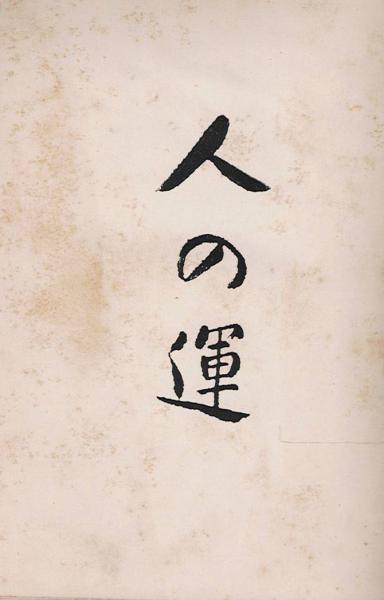 人の運